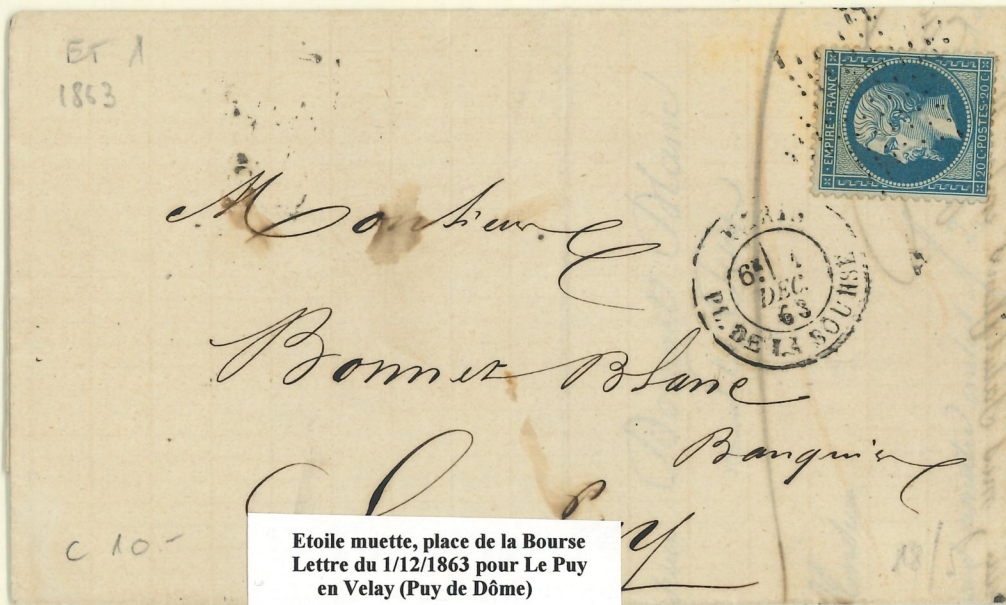 ET 1
1863
EMPIRE FRANC.
20 C. POSTES. 20 C.
Monsieur
PARIS
6E 1
DEC.
63
PL. DE LA BOURSE
Bonnet Blanc
Banquier
Le Puy
C 10.-
Etoile muette, place de la Bourse
Lettre du 1/12/1863 pour Le Puy
en Velay (Puy de Dôme)